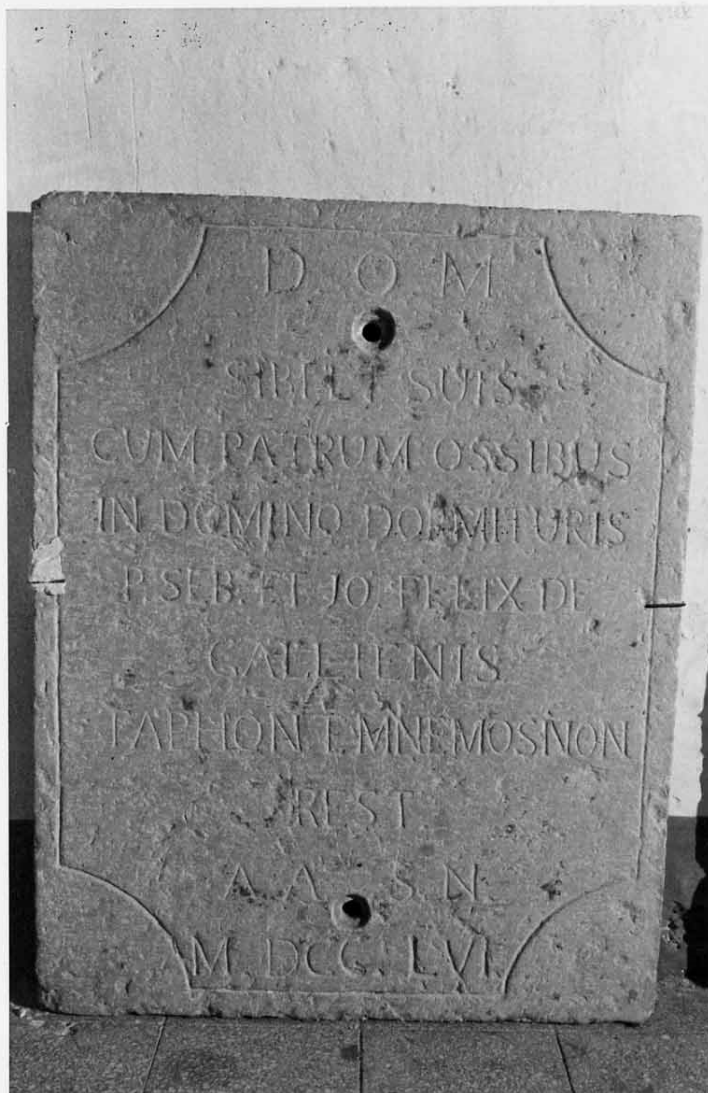 D O M
SIBI ET SUIS
CUM PATRUM OSSIBUS
IN DOMINO DORMITURIS
P. SEB. ET JO. FELIX DE
GALLIENIS
TAPHON E MNEMOSNON
REST
A. A S. N.
M. DCC. LVI.